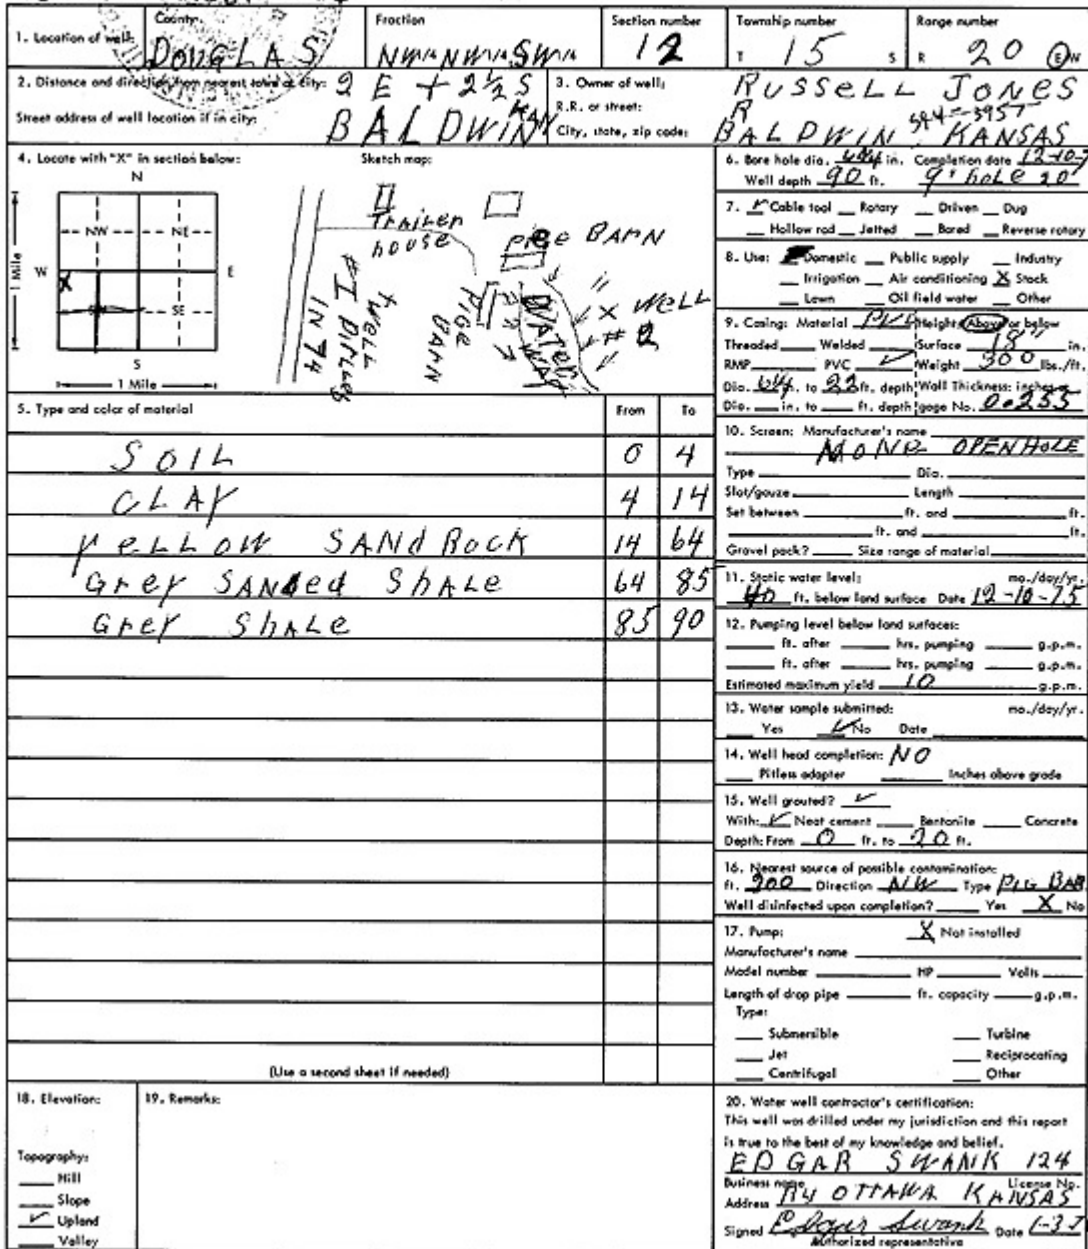 1. Location of well: County: DOUGLAS Fraction NW¼ NW¼ SW¼ Section number 12 Township number T 15 S Range number R 20 E W
2. Distance and direction from nearest town or city: 2 E + 2½ S
Street address of well location if in city: BALDWIN
3. Owner of well: RUSSELL JONES
R.R. or street: R
City, state, zip code: BALDWIN KANSAS 594-3957
4. Locate with "X" in section below:
N
NW NE
W X E
SE
S
1 Mile
1 Mile
Sketch map:
Trailer house
BARN
PIGE BARN
WATER WAY
X WELL #2
#1 WELL
IN 74
5. Type and color of material From To
SOIL 0 4
CLAY 4 14
YELLOW SANd ROCK 14 64
Grey SANded ShALe 64 85
Grey ShALe 85 90
(Use a second sheet if needed)
6. Bore hole dia. in. Completion date 12-10-7
Well depth 90 ft. 9" hole 20'
7. ✓ Cable tool Rotary Driven Dug
Hollow rod Jetted Bored Reverse rotary
8. Use: Domestic Public supply Industry
Irrigation Air conditioning X Stock
Lawn Oil field water Other
9. Casing: Material PVC Height: Above or below
Threaded Welded Surface 18" in.
RMP PVC ✓ Weight 300 lbs./ft.
Dia. 6¼ in. to 22 ft. depth Wall Thickness: inches or
Dia. in. to ft. depth gage No. 0.255
10. Screen: Manufacturer's name
NONE OPEN HOLE
Type Dia.
Slot/gauze Length
Set between ft. and ft.
ft. and ft.
Gravel pack? Size range of material
11. Static water level: mo./day/yr.
40 ft. below land surface Date 12-10-75
12. Pumping level below land surfaces:
ft. after hrs. pumping g.p.m.
ft. after hrs. pumping g.p.m.
Estimated maximum yield 10 g.p.m.
13. Water sample submitted: mo./day/yr.
Yes ✓ No Date
14. Well head completion: NO
Pitless adapter Inches above grade
15. Well grouted? ✓
With: ✓ Neat cement Bentonite Concrete
Depth: From 0 ft. to 20 ft.
16. Nearest source of possible contamination:
ft. 200 Direction NW Type PIG BAR
Well disinfected upon completion? Yes X No
17. Pump: X Not installed
Manufacturer's name
Model number HP Volts
Length of drop pipe ft. capacity g.p.m.
Type:
Submersible Turbine
Jet Reciprocating
Centrifugal Other
18. Elevation:
Topography:
Hill
Slope
✓ Upland
Valley
19. Remarks:
20. Water well contractor's certification:
This well was drilled under my jurisdiction and this report
is true to the best of my knowledge and belief.
EDGAR SWANK 124
Business name License No.
Address R4 OTTAWA KANSAS
Signed Edgar Swank Date
Authorized representative